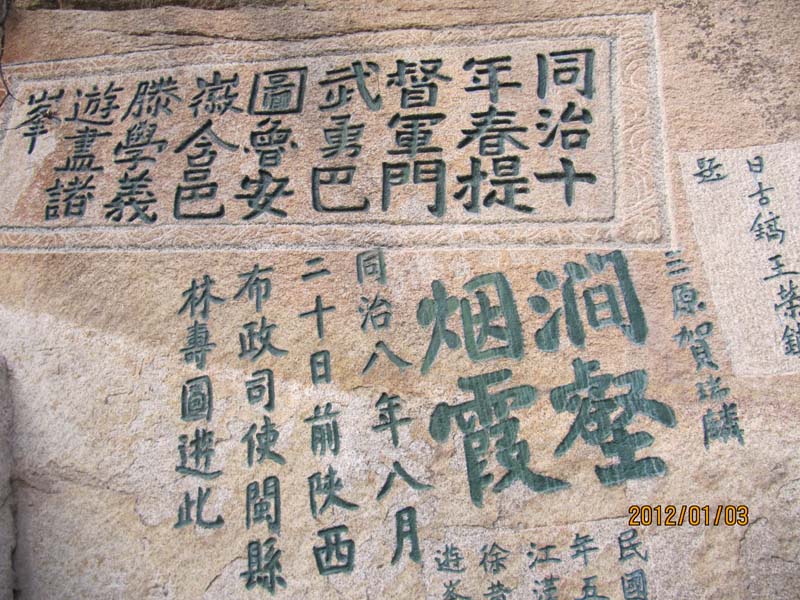 同治十
年春提
督軍門
武勇巴
圖魯安
徽合邑
滕學義
遊盡諸
峯
日古鎬王榮
題
三原賀瑞麟
澗壑
烟霞
同治八年八月
二十日前陝西
布政司使閩縣
林壽圖遊此
民國
年五
江
徐
遊
2012/01/03